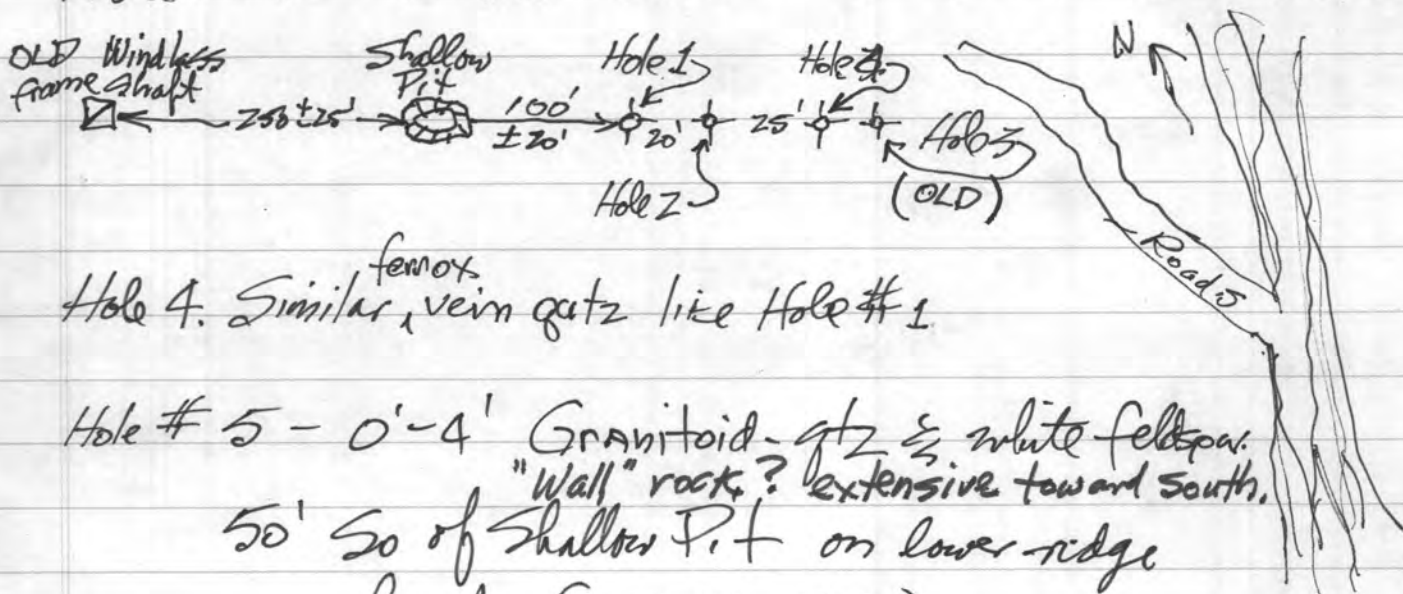 OLD Windlass frame shaft
Shallow Pit
Hole 1
Hole 4
N
250' ± 25'
100' ± 20'
20'
25'
Hole 3 (OLD)
Hole 2
Roads
Hole 4. Similar, ferrox vein qutz like Hole #1
Hole # 5 - 0'-4' Granitoid - qtz & white feldspar.
"Wall" rock? extensive toward South.
50' So of Shallow Pit on lower ridge